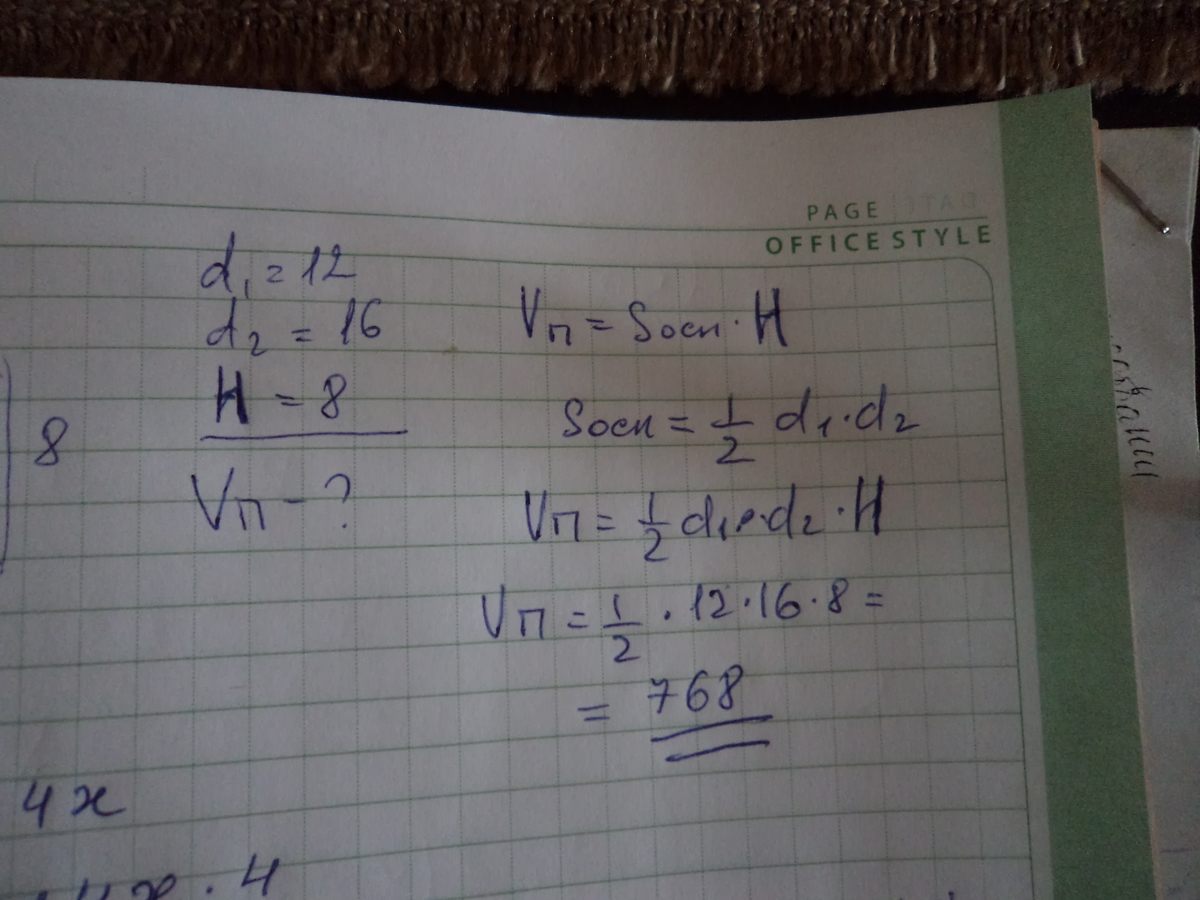 PAGE DATE
OFFICE STYLE
d₁ = 12
d₂ = 16
H = 8
Vп - ?
8
Vп = Sосн · H
Sосн = 1/2 d₁ · d₂
Vп = 1/2 d₁ · d₂ · H
Vп = 1/2 · 12 · 16 · 8 =
= 768
4x
4x · 4